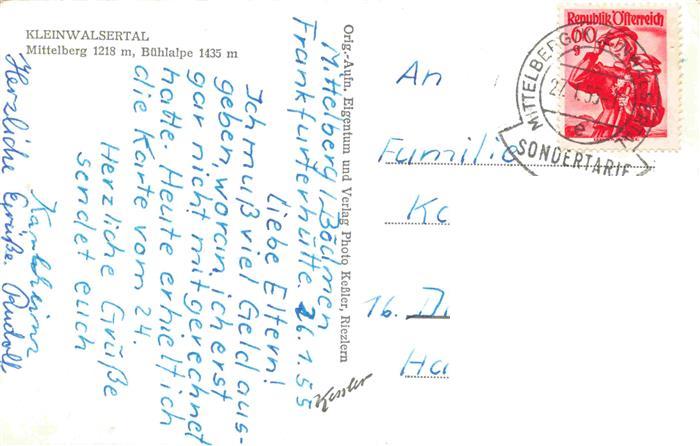 KLEINWALSERTAL
Mittelberg 1218 m, Bühlalpe 1435 m
Mittelberg / Bödmen
Frankfurterhütte. 26.1.55
Liebe Eltern!
Ich muß viel Geld aus-
geben, woran ich erst
gar nicht mitgerechnet
hatte. Heute erhielt ich
die Karte vom 24.
Herzliche Grüße
sendet euch
Karlheinz
Herzliche Grüße. Rudolf
Orig.-Aufn., Eigentum und Verlag Photo Keßler, Riezlern
Kessler
Republik Österreich
60
g
MITTELBERG
27.1.55
e
SONDERTARIF
An
Familie
Ka
16.
Ha